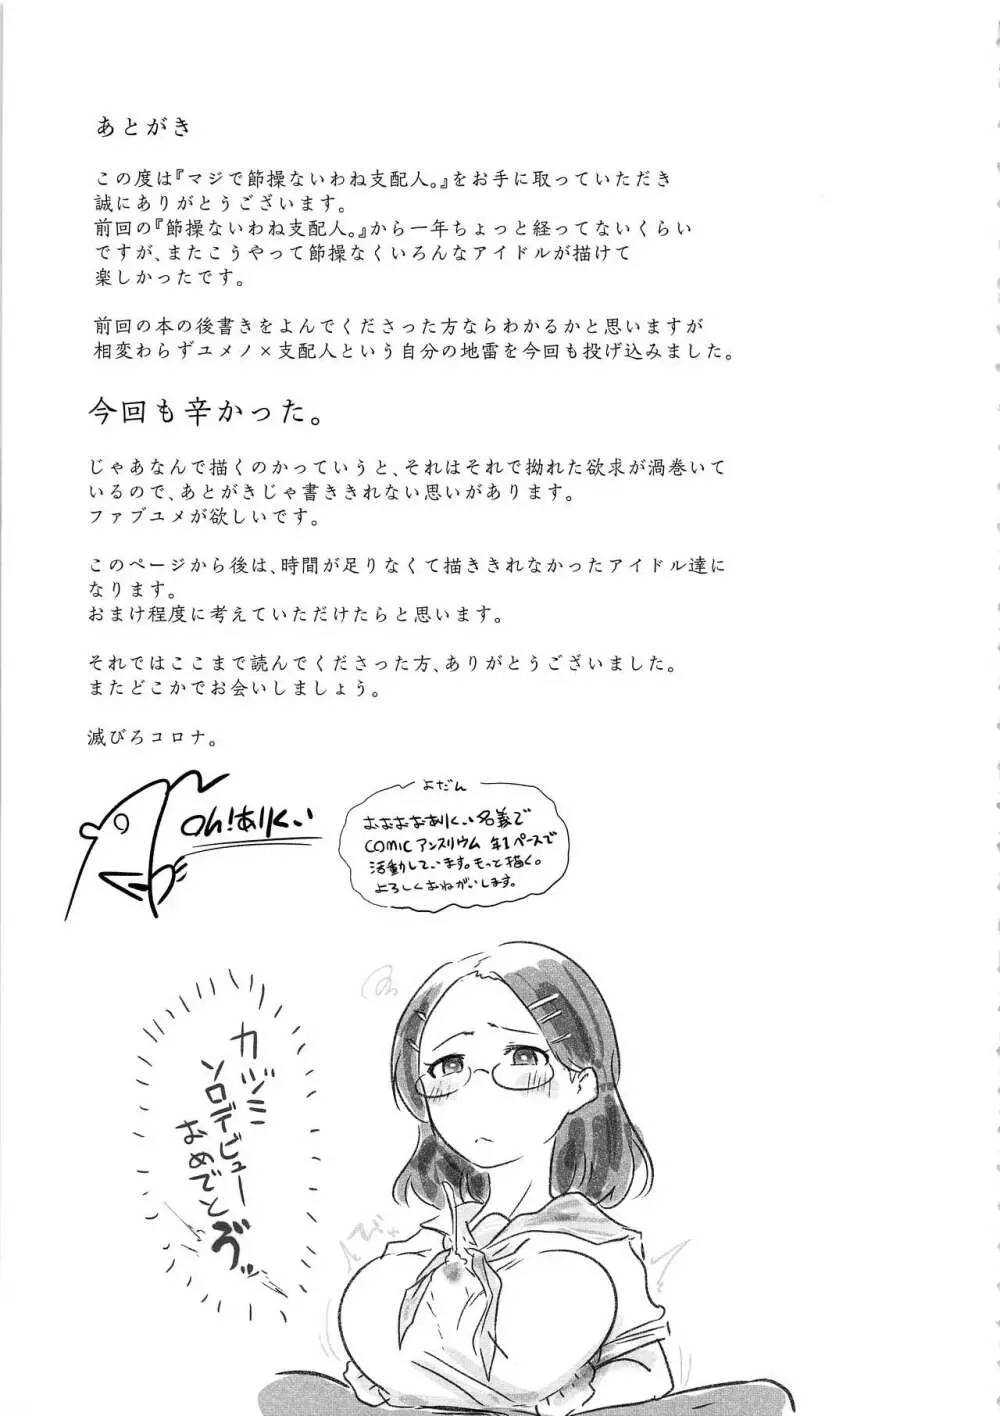 あとがき
この度は『マジで節操ないわね支配人。』をお手に取っていただき
誠にありがとうございます。
前回の『節操ないわね支配人。』から一年ちょっと経ってないくらい
ですが、またこうやって節操なくいろんなアイドルが描けて
楽しかったです。
前回の本の後書きをよんでくださった方ならわかるかと思いますが
相変わらずユメノ×支配人という自分の地雷を今回も投げ込みました。
今回も辛かった。
じゃあなんで描くのかっていうと、それはそれで拗れた欲求が渦巻いて
いるので、あとがきじゃ書ききれない思いがあります。
ファブユメが欲しいです。
このページから後は、時間が足りなくて描ききれなかったアイドル達に
なります。
おまけ程度に考えていただけたらと思います。
それではここまで読んでくださった方、ありがとうございました。
またどこかでお会いしましょう。
滅びろコロナ。
Oh!ありくい
よだん
おおおおおありくい名義で
COMIC アンスリウム 年1ペースで
活動しています。もっと描く。
よろしくおねがいします。
カヅミ
ソロデビュー
おめでとぅ